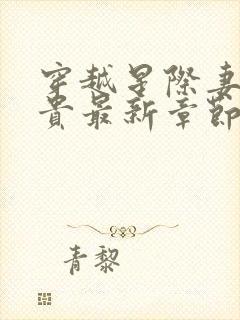 穿越星际妻
贵最新章節
青黎